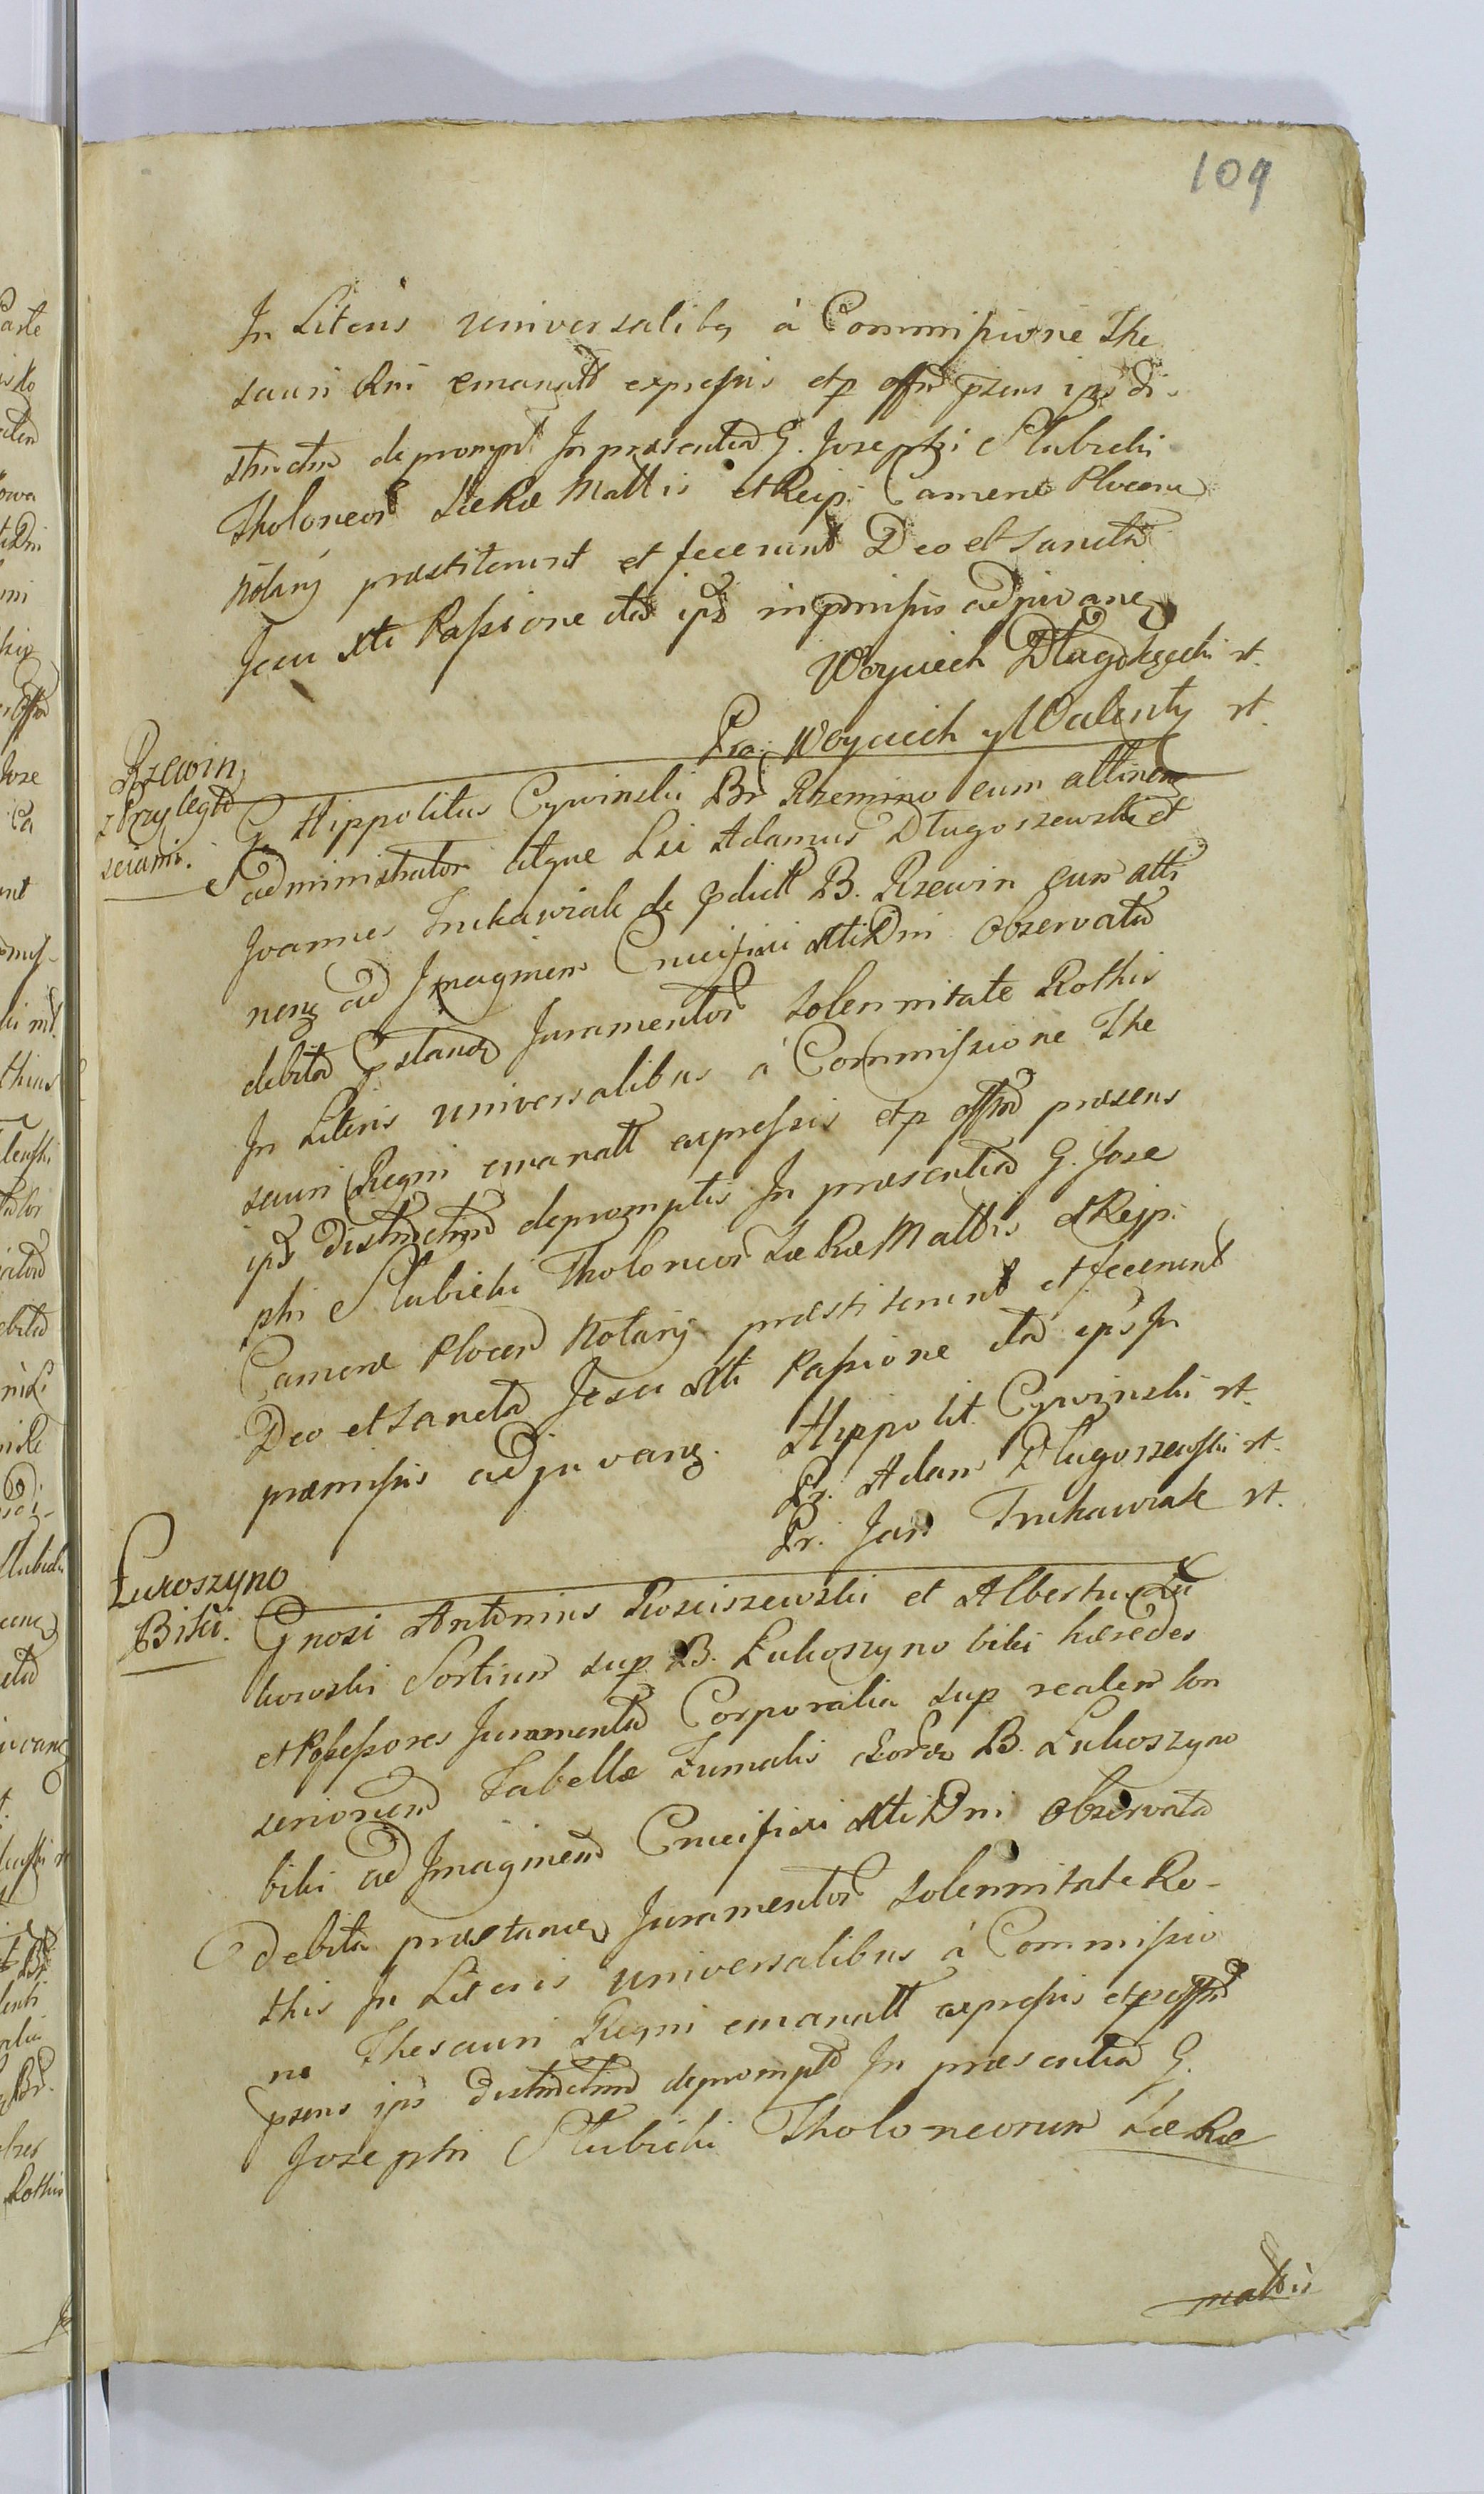 109
In Literis universalibq à Commissione The
sauri Rni emanatt expressis etp offm psens ips di-
stinctim deprompt In praesentia G. Josephi Słubicki
Tholoneor Sae Rae Mattis et Reip. Camerae Plocen
Notarij praestiterunt et fecerunt Deo et Sancta
Jesu Xti Passione ita ips in pmissis adjuvan
Woyciech Długołęcki st.
Pra. Woyciech y Walenty st.
Rzewin,
z Przyległo
sciami.
G. Hippolitus Cywinski Br. Rzewino cum attinen
administrator atque Lri Adamus Długoszewski et
Joannes Truchawiak de pdict B. Rzewin cum atti
nenz ad Imaginem Crucifixi Xti Dni Observata
debita pstand Juramentor Solennitate Rothis
In Literis universalibus à Commissione The
sauri Regni emanatt expressis etp offm praesens
ips distinctim depromptis In praesentia G. Jose
phi Słubicki Tholoneor Sae Rae Mattis et Reip.
Camerae Plocen Notarij praestiterunt et fecerunt
Deo et Sancta Jesu Xti Passione ita ips In
praemissis adjuvanz. Hippolit Cywinski st.
Pr. Adam Długoszewski st.
Pr. Jan Truchawiak st.
Łukoszyno
Biki.
Gnosi Antonius Rosciszewski et Albertus Łu
kowski Sortium sup B. Łukoszyno biki haeredes
et Possessores Juramenta Corporalia sup realem con
scriptionem Tabellae Fumalis eorda B. Łukoszyno
biki ad Imaginem Crucifixi Xti Dni Observata
debita praestand Juramentor Solennitate Ro-
this In Literis universalibus à Commissio
ne Thesauri Regni emanatt expressis etp offm
psens ips distinctim deprompt In praesentia G.
Josephi Słubicki Tholoneorum Sae Rae
Mattis